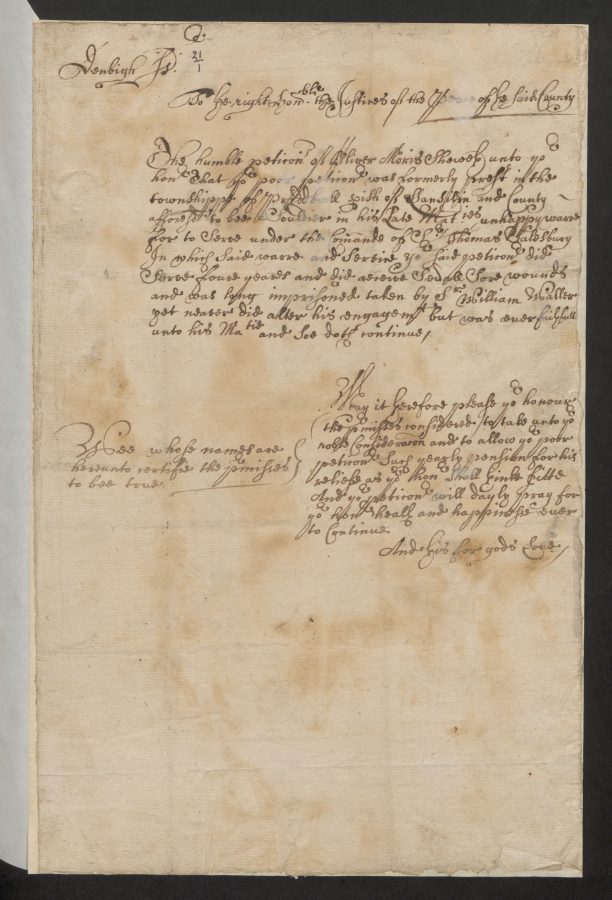 21
1
Denbigh ss.
To the right honble the Justices of the Peace of the said County
The humble peticon of Oliver Morris Sheweth unto yor
honrs That yor poor peticonr was formerly prest in the
townshippe of pish of Llansilin and County
afforesd to bee a Souldier in his Late Maties unhappy warre
for to Serve under the Comande of Sr Thomas Salesbury
In which said warre and Service yor said peticonr did
Serve foure yeares and did receive Sevall Sore wounds
and was long imprisoned taken by Sr William Waller
yet neaver did alter his engagemt but was ever faithfull
unto his Matie and Soe doth continue,
May it therefore please yor honours
the pmisses considered to take unto yor
noble Consideracon and to allow yor poor
peticonr Such yearly pension for his
reliefe as yor honrs Shall thinke fitte
And yor peticonr will dayly pray for
yor honrs health and happinesse ever
to Continue
And this for gods Love,
Wee whose names are
hereunto certifie the pmisses
to bee true